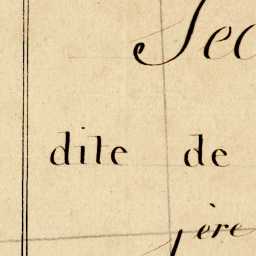 Sec
dite de
ière